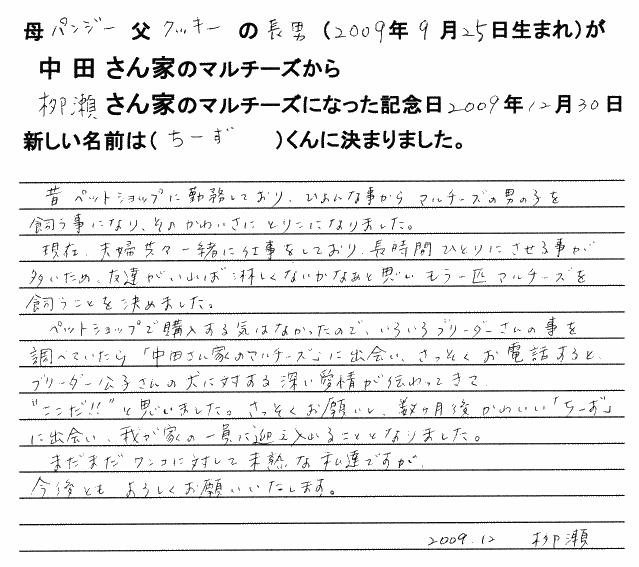 母 パンジー 父 クッキー の 長男 (2009年 9月25日生まれ)が
中田さん家のマルチーズから
柳瀬 さん家のマルチーズになった記念日2009年12月30日
新しい名前は( ちーず )くんに決まりました。
昔 ペットショップに勤務しており、ひょんな事から マルチーズの男の子を
飼う事になり、そのかわいさに とりこになりました。
現在、夫婦共々一緒に仕事をしており、長時間ひとりにさせる事が
多いため、友達がいれば 淋しくないかなぁと思い もう一匹 マルチーズを
飼うことを決めました。
ペットショップで購入する気はなかったので、いろいろブリーダーさんの事を
調べていたら「中田さん家のマルチーズ」に出会い、さっそく お電話すると、
ブリーダー公子さんの犬に対する深い愛情が伝わってきて
"ここだ!!" と思いました。さっそくお願いし、数ヶ月後 かわいい「ちーず」
に出会い、我が家の一員に迎え入れることとなりました。
まだまだワンコに対して未熟な私達ですが、
今後とも よろしくお願いいたします。
2009.12 柳瀬